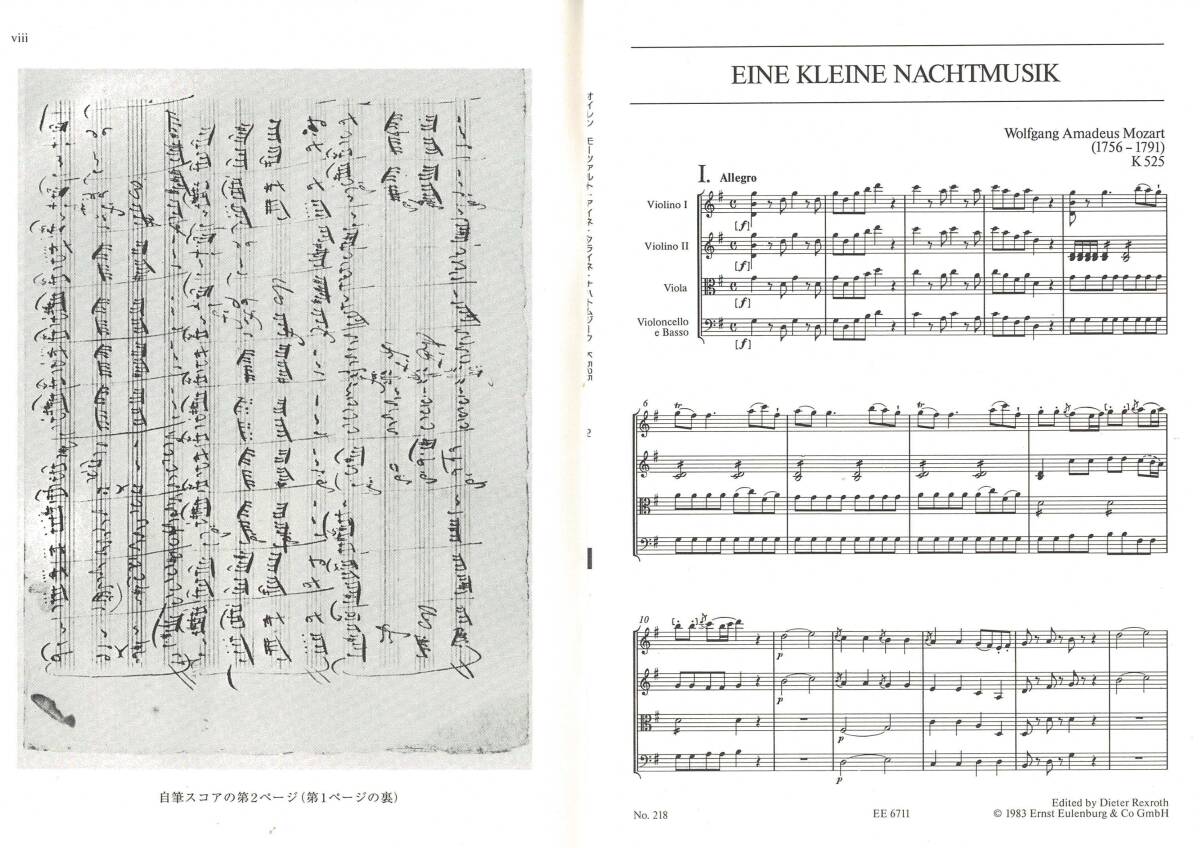 viii
自筆スコアの第2ページ(第1ページの裏)
オイレン モーツァルト:アイネ・クライネ・ナハトムジーク K.525
2
EINE KLEINE NACHTMUSIK
Wolfgang Amadeus Mozart
(1756 – 1791)
K 525
I. Allegro
Violino I
[f]
Violino II
[f]
Viola
[f]
Violoncello
e Basso
[f]
6
tr
tr
tr
10
p
p
p
p
No. 218
EE 6711
Edited by Dieter Rexroth
© 1983 Ernst Eulenburg & Co GmbH